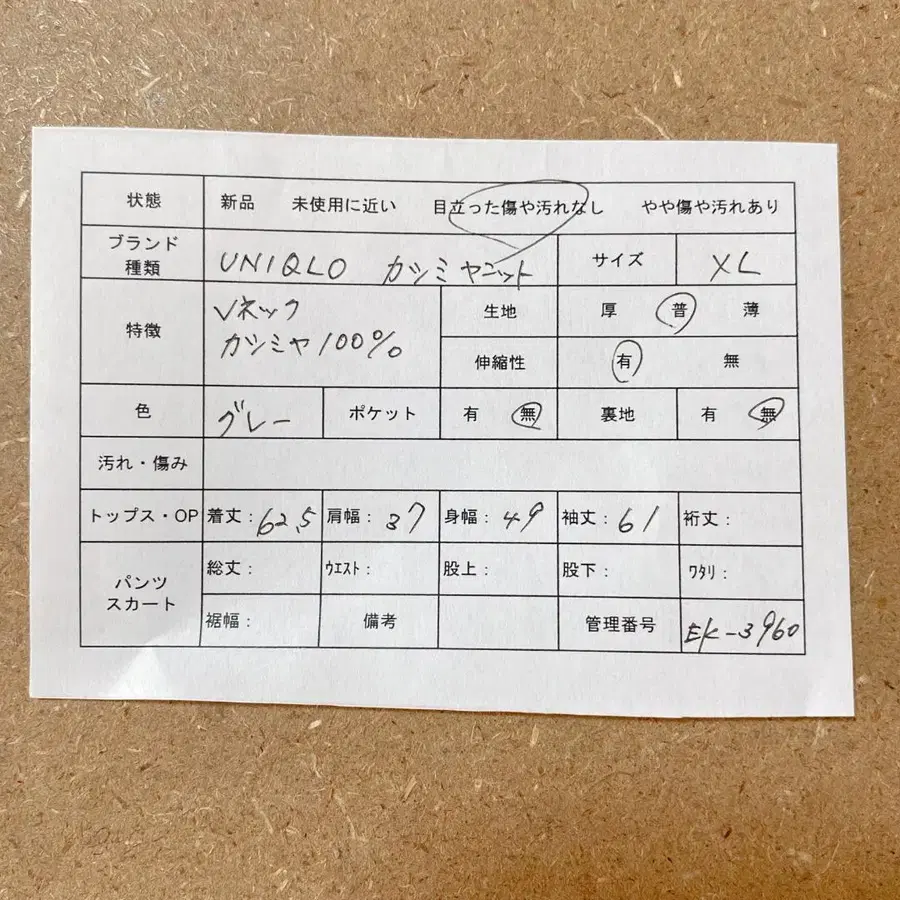 状態 新品 未使用に近い 目立った傷や汚れなし やや傷や汚れあり
ブランド
種類 UNIQLO カシミヤニット サイズ XL
特徴 Vネック
カシミヤ100%
生地 厚 普 薄
伸縮性 有 無
色 グレー ポケット 有 無 裏地 有 無
汚れ・傷み
トップス・OP 着丈: 62.5 肩幅: 37 身幅: 49 袖丈: 61 裄丈:
パンツ
スカート
総丈: ウエスト: 股上: 股下: ワタリ:
裾幅: 備考 管理番号 EK-3960